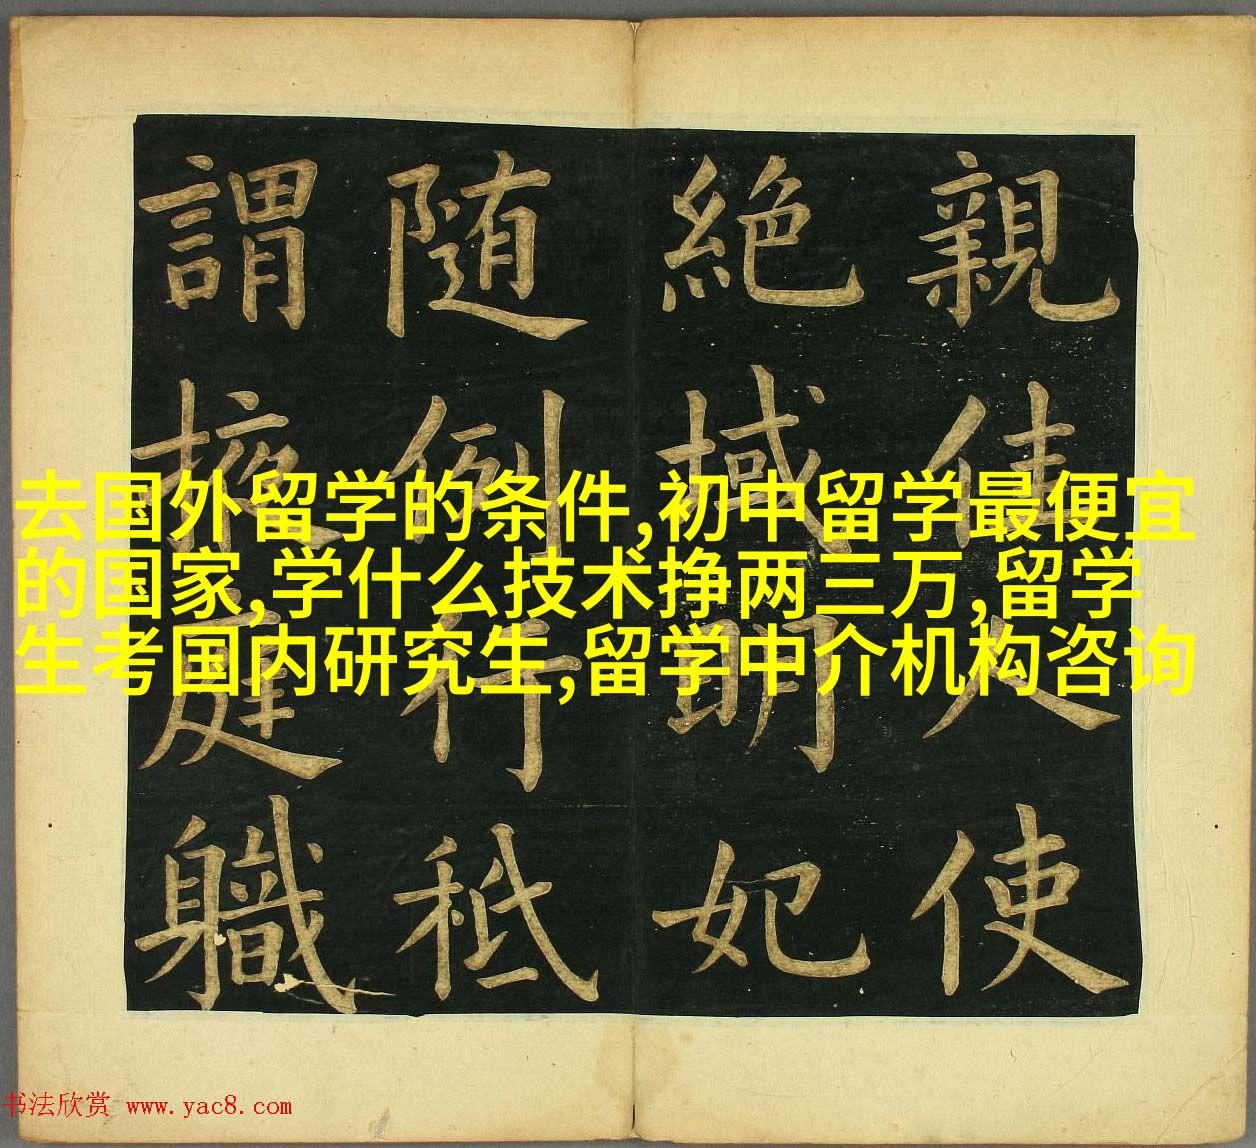 親佳人使
絕域明妃
随例行秪
謂掖庭職
去国外留学的条件,初中留学最便宜
的国家,学什么技术挣两三万,留学
生考国内研究生,留学中介机构咨询
书法欣赏 www.yac8.com